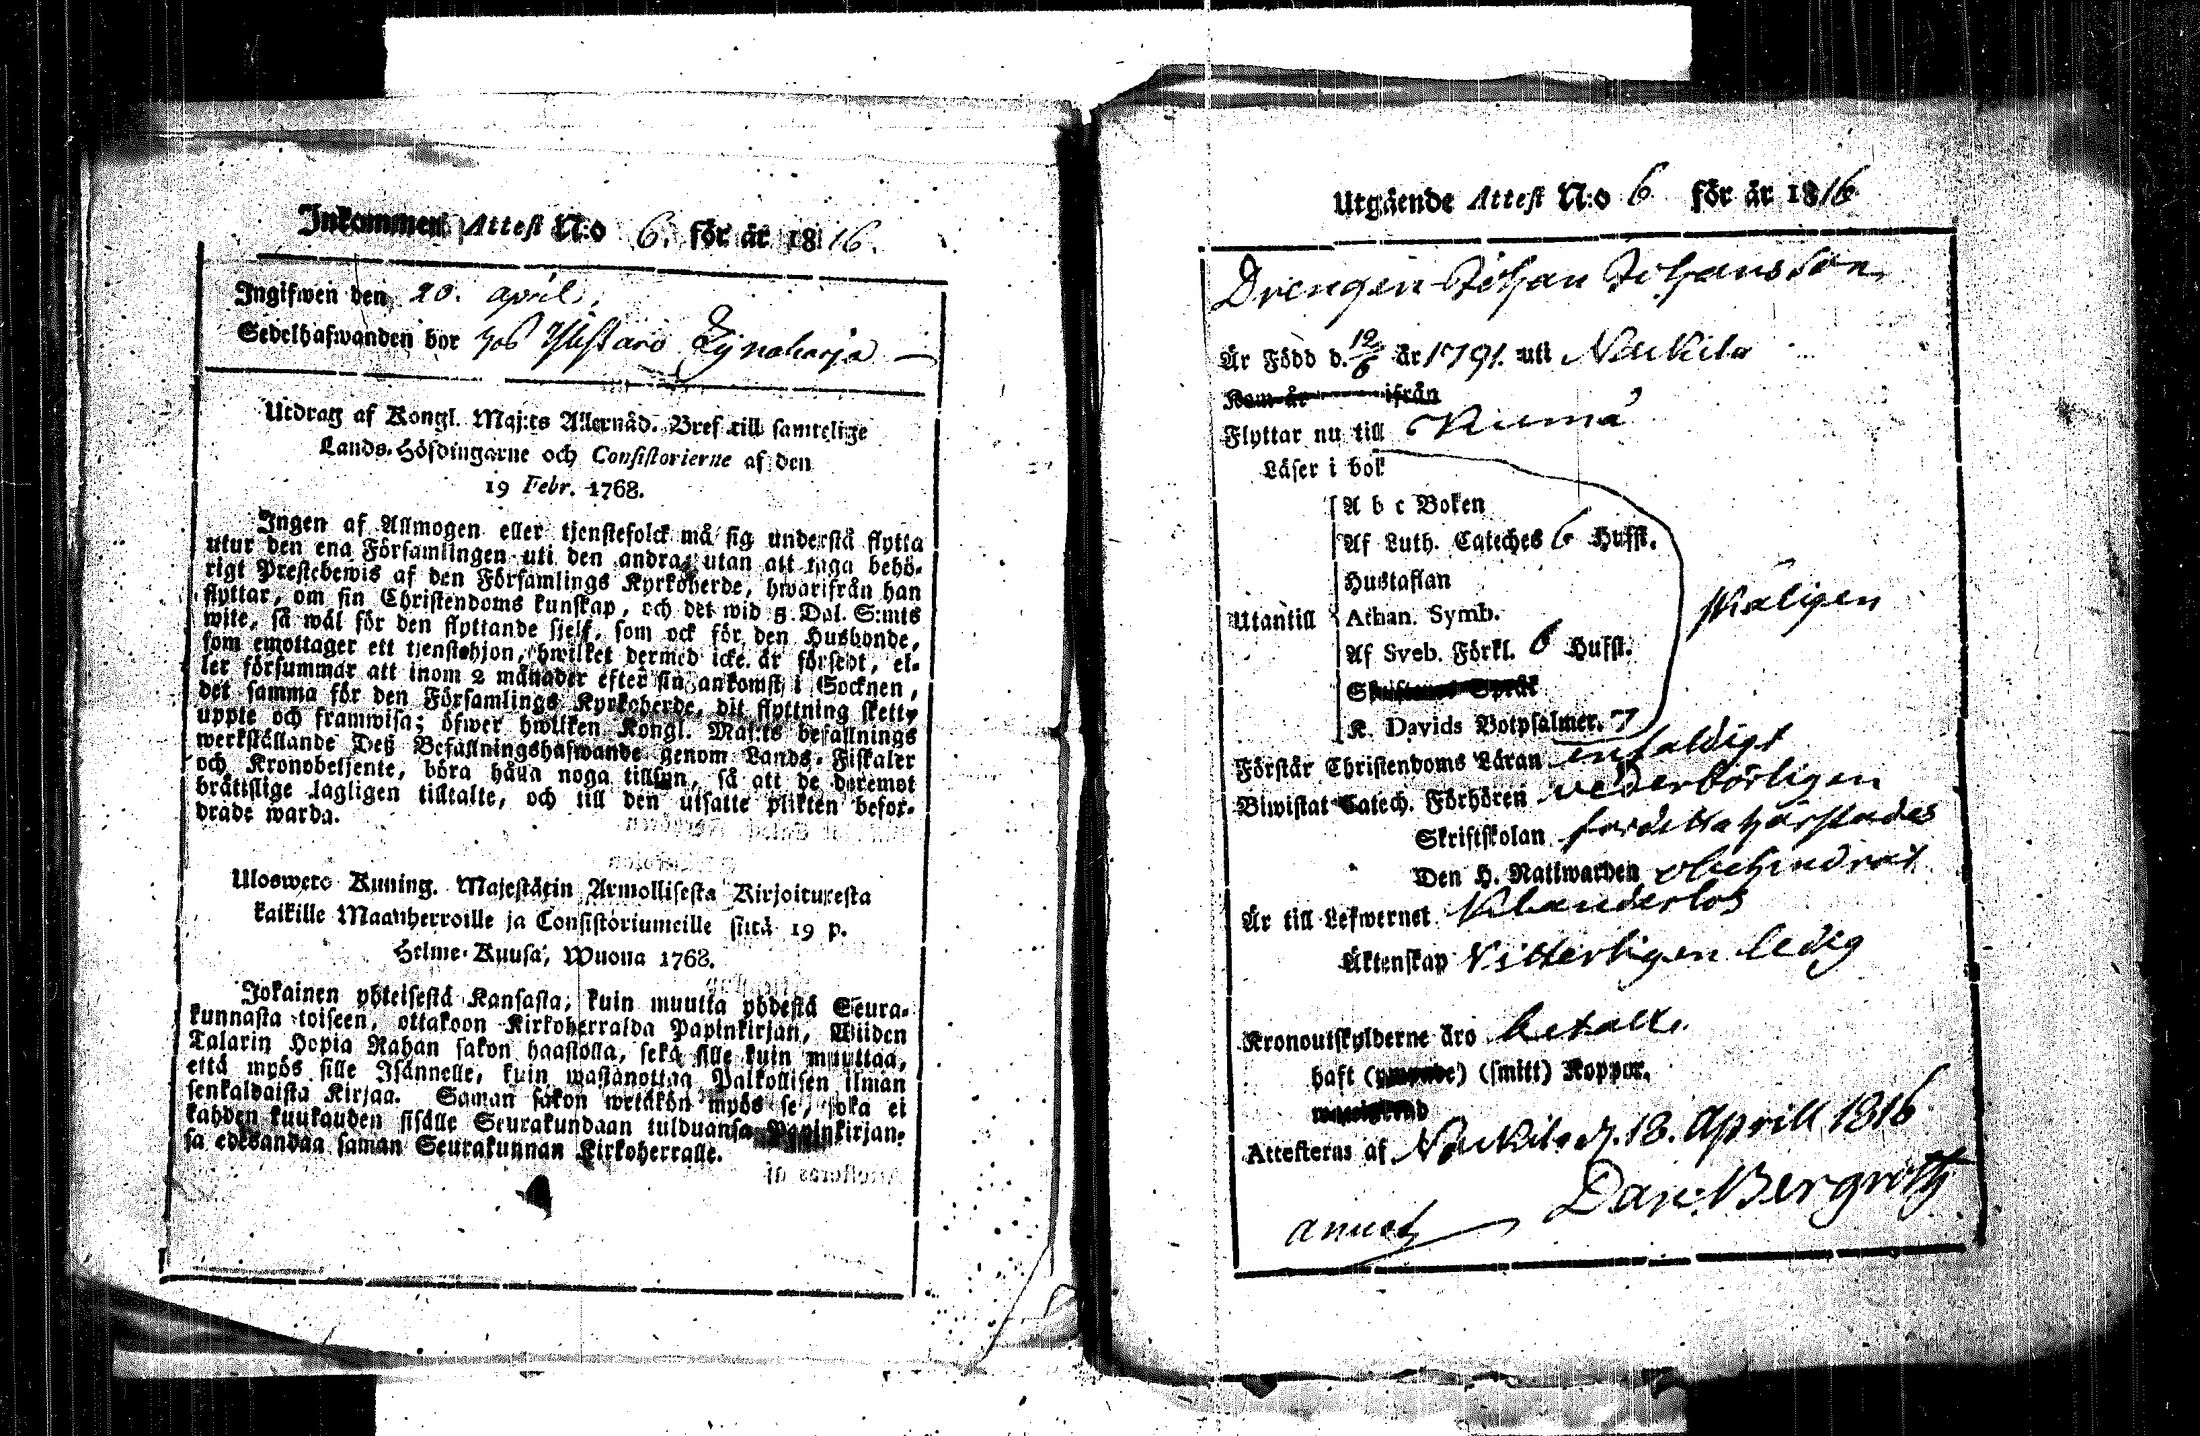 Inkommen Attest N:o 6. för år 1816.
Ingifwen den 20. april.
Sedelhafwanden bor hos
Utdrag af Kongl. Maj:ts Allernåd. Bref till samtelige
Lands-Höfdingarne och Consistorierne af den
19 Febr. 1768.
Ingen af Allmogen eller tjenstefolck må sig understå flytta
utur den ena Församlingen uti den andra, utan att taga behö-
rigt Prestebewis af den Församlings Kyrkoherde, hwarifrån han
flyttar, om sin Christendoms kunskap, och det wid 5 Dal. S:mts
wite, så wäl för den flyttande sjelf, som ock för den Husbonde,
som emottager ett tjenstehjon, hwilket dermed icke är försedt, el-
ler försummar att inom 2 månader efter sin ankomst i Socknen,
det samma för den Församlings Kyrkoherde, dit flyttning skett,
uppte och framwisa; öfwer hwilken Kongl. Maj:ts befallnings
werkställande Deß Befallningshafwande genom Lands-Fiskaler
och Kronobetjente, böra hålla noga tillsyn, så att de deremot
bråttslige lagligen tilltalte, och till den utsatte plikten befor-
drade warda.
Ulosweto Kuning. Majestätin Armollisesta Kirjoituxesta
kaikille Maanherroille ja Consistoriumeille siitä 19 p.
Helme-Kuusa, Wuona 1768.
Jokainen yhteisestä Kansasta, kuin muutta yhdestä Seura-
kunnasta toiseen, ottakoon Kirkoherralda Papinkirjan, Wiiden
Talarin Hopia Rahan sakon haastolla, sekä sille kuin muuttaa,
että myös sille Isännelle, kuin wastanottaa Palkollisen ilman
senkaldaista Kirjaa. Saman sakon wetäkön myös se, joka ei
kahden kuukauden sisälle Seurakundaan tulduansa Papinkirjan-
sa edesandaa saman Seurakunnan Kirkoherralle.
Utgående Attest N:o 6 för år 1816
Drengen Johan Johansson
Är Född d. 12/6 år 1791. uti Noukila
Kom år ifrån
Flyttar nu till Kiuma
Läser i bok
A b c Boken
Af Luth. Cateches 6 Hufst.
Hustaflan
Utantill Athan. Symb.
Af Sveb. Förkl. 6 Hufst.
Skriftenes Språk
K. Davids Botpsalmer. 7
skäligen
Förstår Christendoms Läran enfaldigt
Biwistat Catech. Förhören vederbörligen
Skriftskolan
Den H. Nattwarden obehindrat
Är till Lefwernet Klanderlös
Äktenskap Vitterligen ledig
Kronoutskylderne äro betalte.
haft (smitt) Koppor.
Attesteras af Noukila d. 18. Aprill 1816
Dan: Bergroth